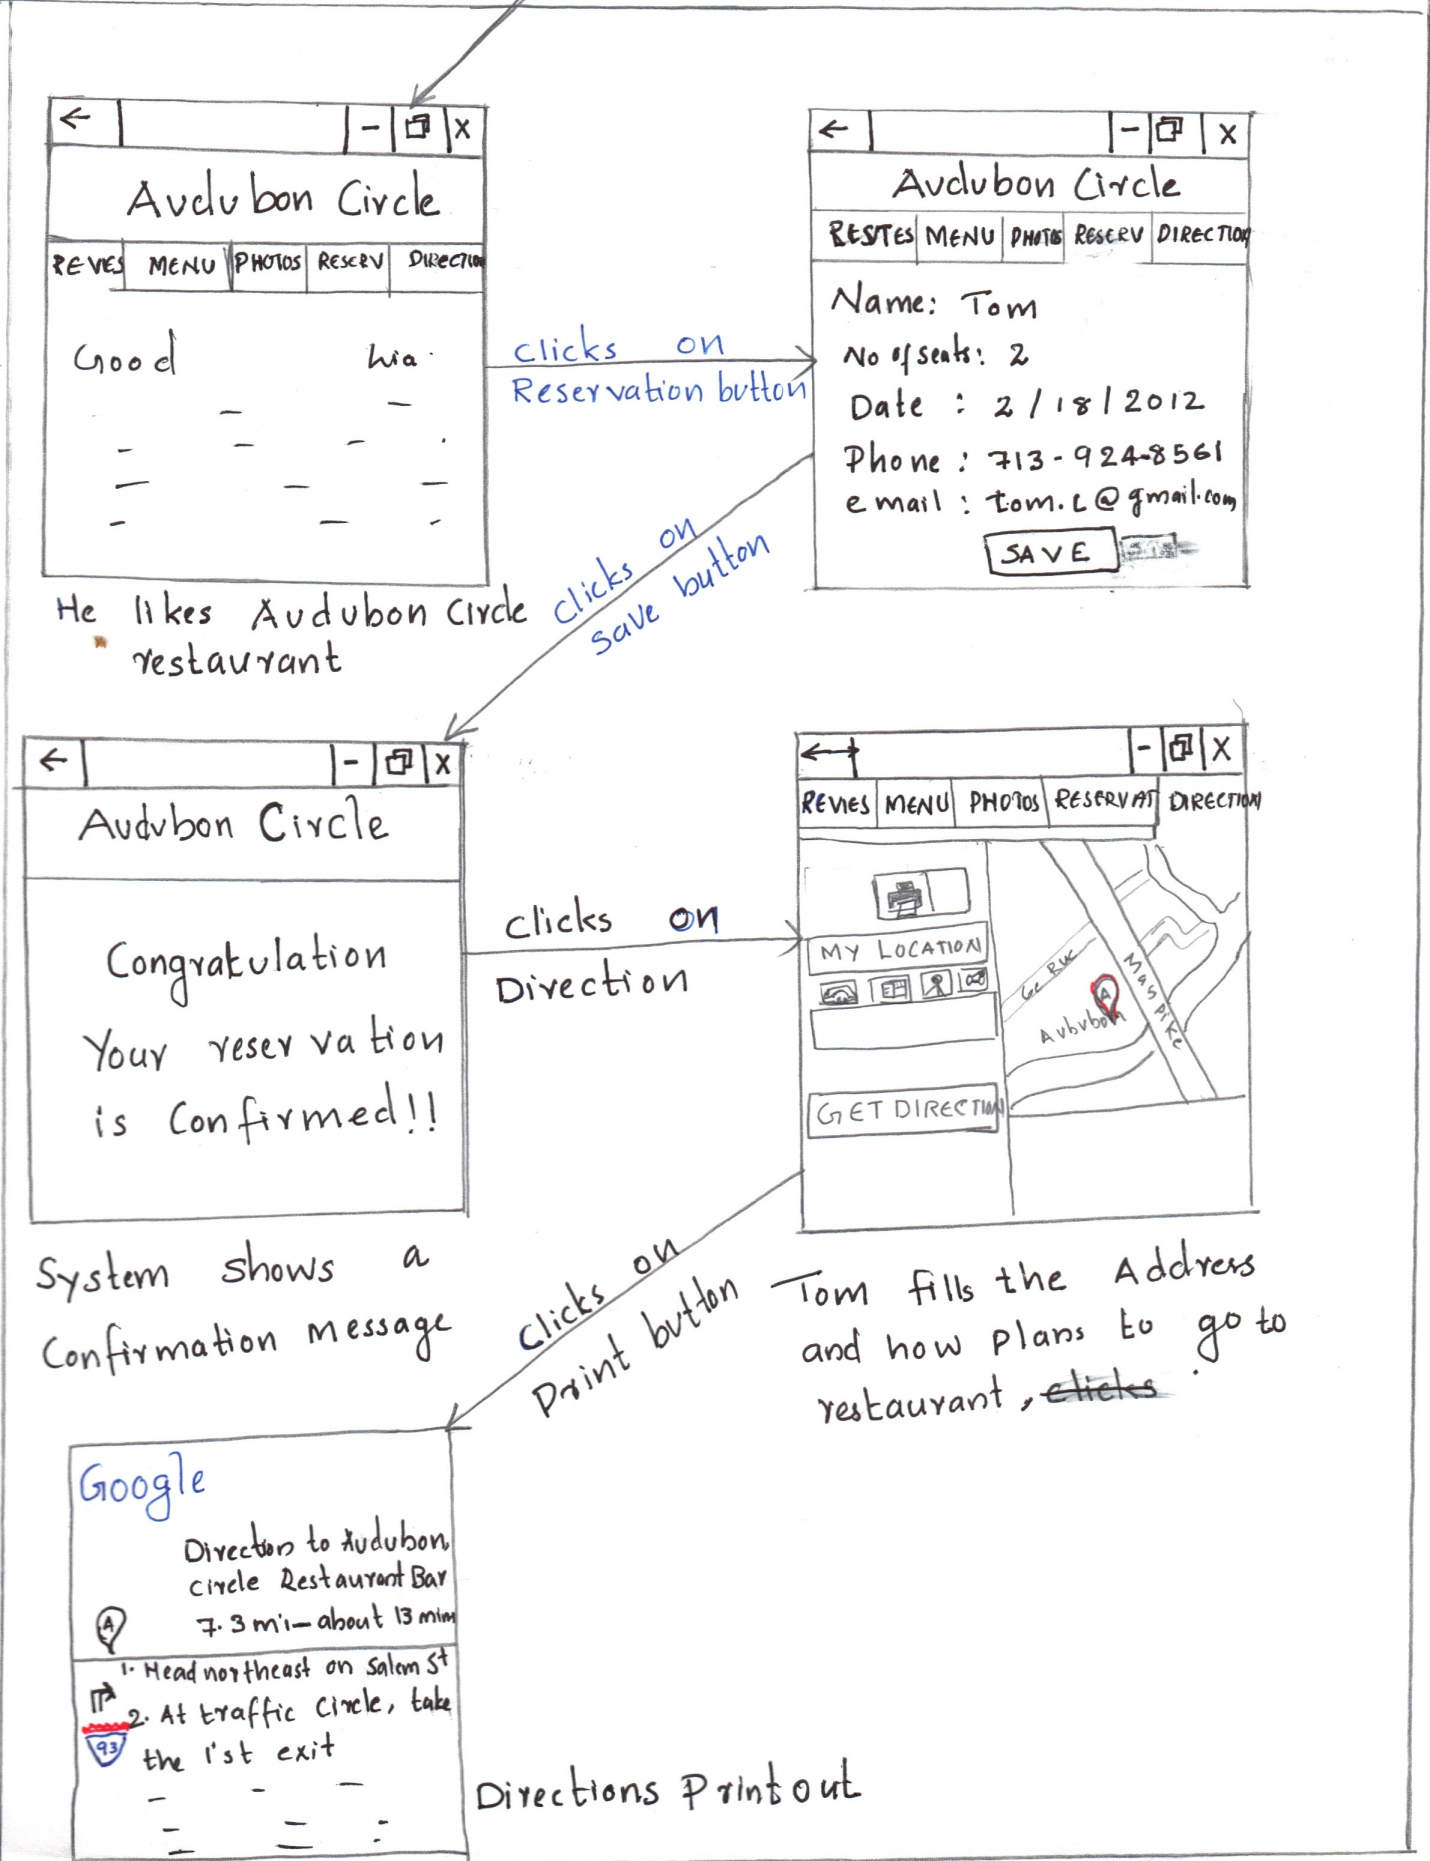 ← - X
Audubon Circle
REVES MENU PHOTOS RESERV DIRECTION
Good
He likes Audubon Circle
restaurant
clicks on
Reservation button
← - X
Audubon Circle
RESTES MENU PHOTOS RESERV DIRECTION
Name: Tom
No of seats: 2
Date : 2/18/2012
Phone : 713-924-8561
email : tom.c@gmail.com
SAVE
clicks on
save button
← - X
Audubon Circle
Congratulation
Your reservation
is Confirmed!!
System shows a
Confirmation message
clicks on
Direction
- X
REVIES MENU PHOTOS RESERVAT DIRECTION
MY LOCATION
GET DIRECTION
Mas pike
A
Aububon
Tom fills the Address
and how plans to go to
restaurant, clicks .
Clicks on
Print button
Google
Direction to Audubon
circle Restaurant Bar
A
7.3 mi - about 13 mim
1. Head northeast on Salem St
2. At traffic Circle, take
93
the 1'st exit
Directions Print out